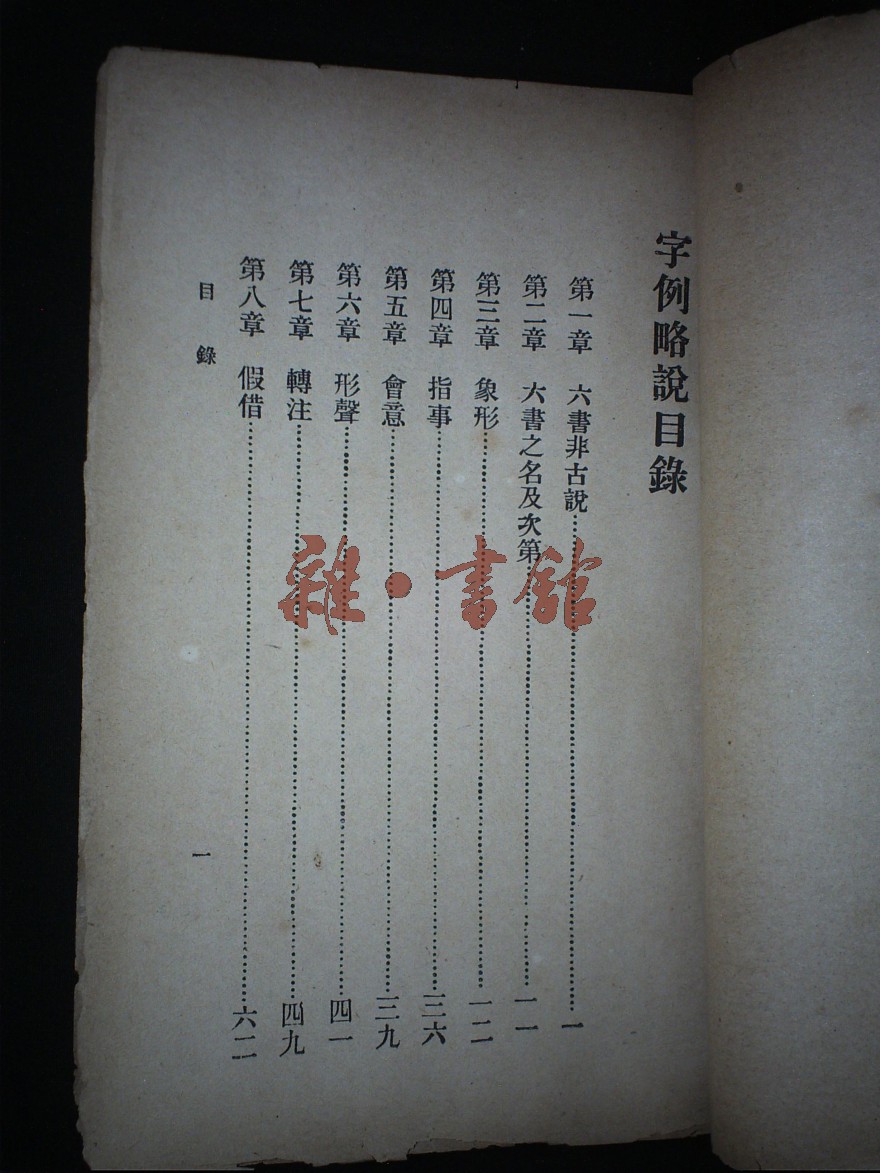 字例略說目錄
第一章　六書非古說……………………一
第二章　大書之名及次第……………………一一
第三章　象形……………………一二
第四章　指事……………………三六
第五章　會意……………………三九
第六章　形聲……………………四一
第七章　轉注……………………四九
第八章　假借……………………六二
目錄
一
雜·書館